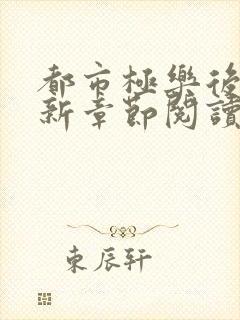 都市極樂後
新章節閱讀
東辰軒